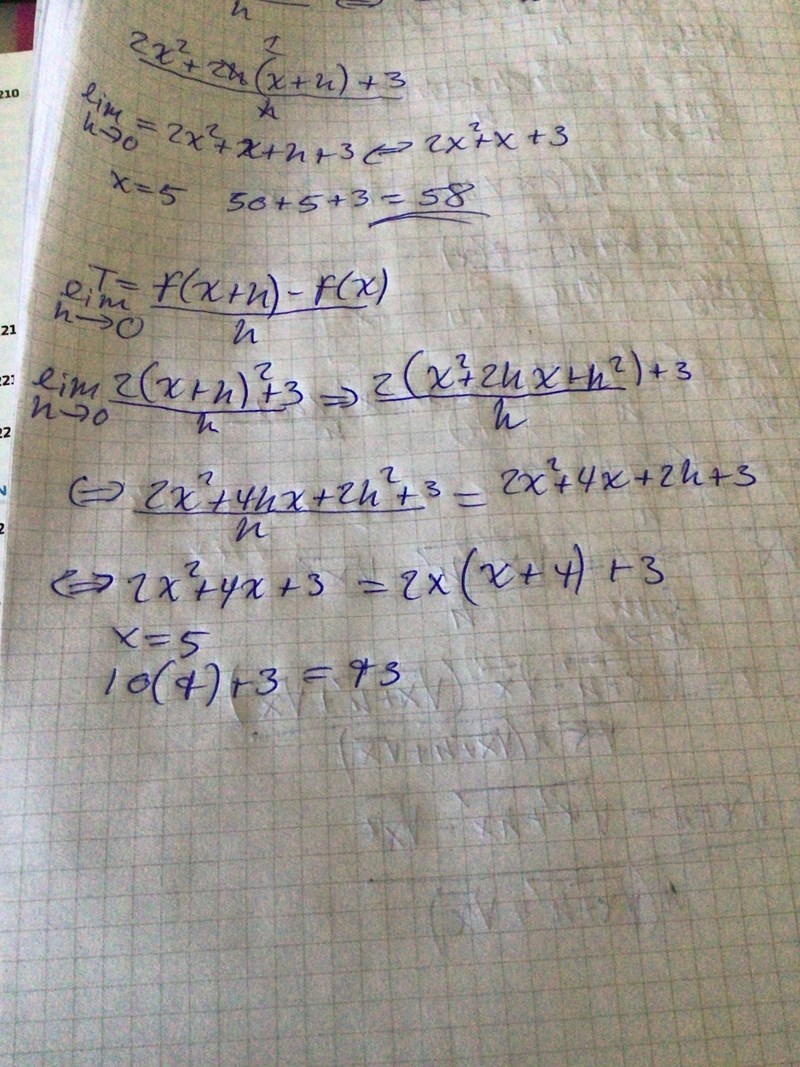 h
2x² + 2h(x+h) + 3
h
lim h→0 = 2x²+x+h+3 ⇔ 2x²+x+3
x=5 50+5+3 = 58
T=
lim h→0 f(x+h) - f(x)
h
lim h→0 2(x+h)²+3 ⇒ 2(x²+2hx+h²)+3
h h
⇔ 2x²+4hx+2h²+3 = 2x²+4x+2h+3
h
⇔ 2x²+4x+3 = 2x(x+4)+3
x=5
10(9)+3 = 93
210
21
22
2